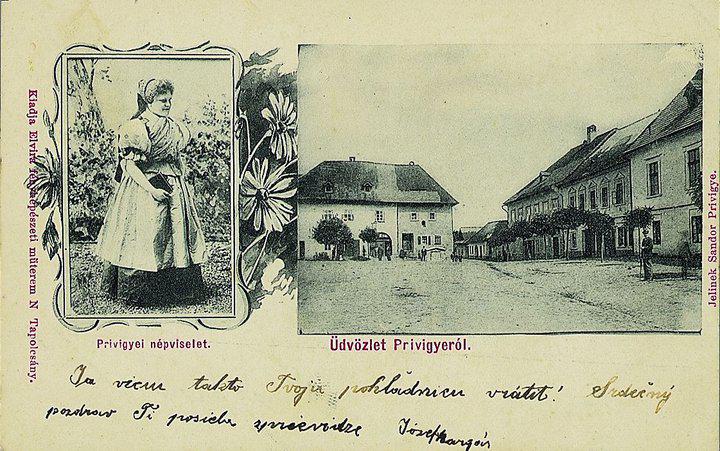 Kiadja Elvira fényképészeti műterem N Tapolcsány.
Privigyei népviselet.
Üdvözlet Privigyeról.
Jelinek Sandor Privigye.
Ja viem takto Tvoju pokládnicu vrátit! Srdečný
pozdrav Ti posiela